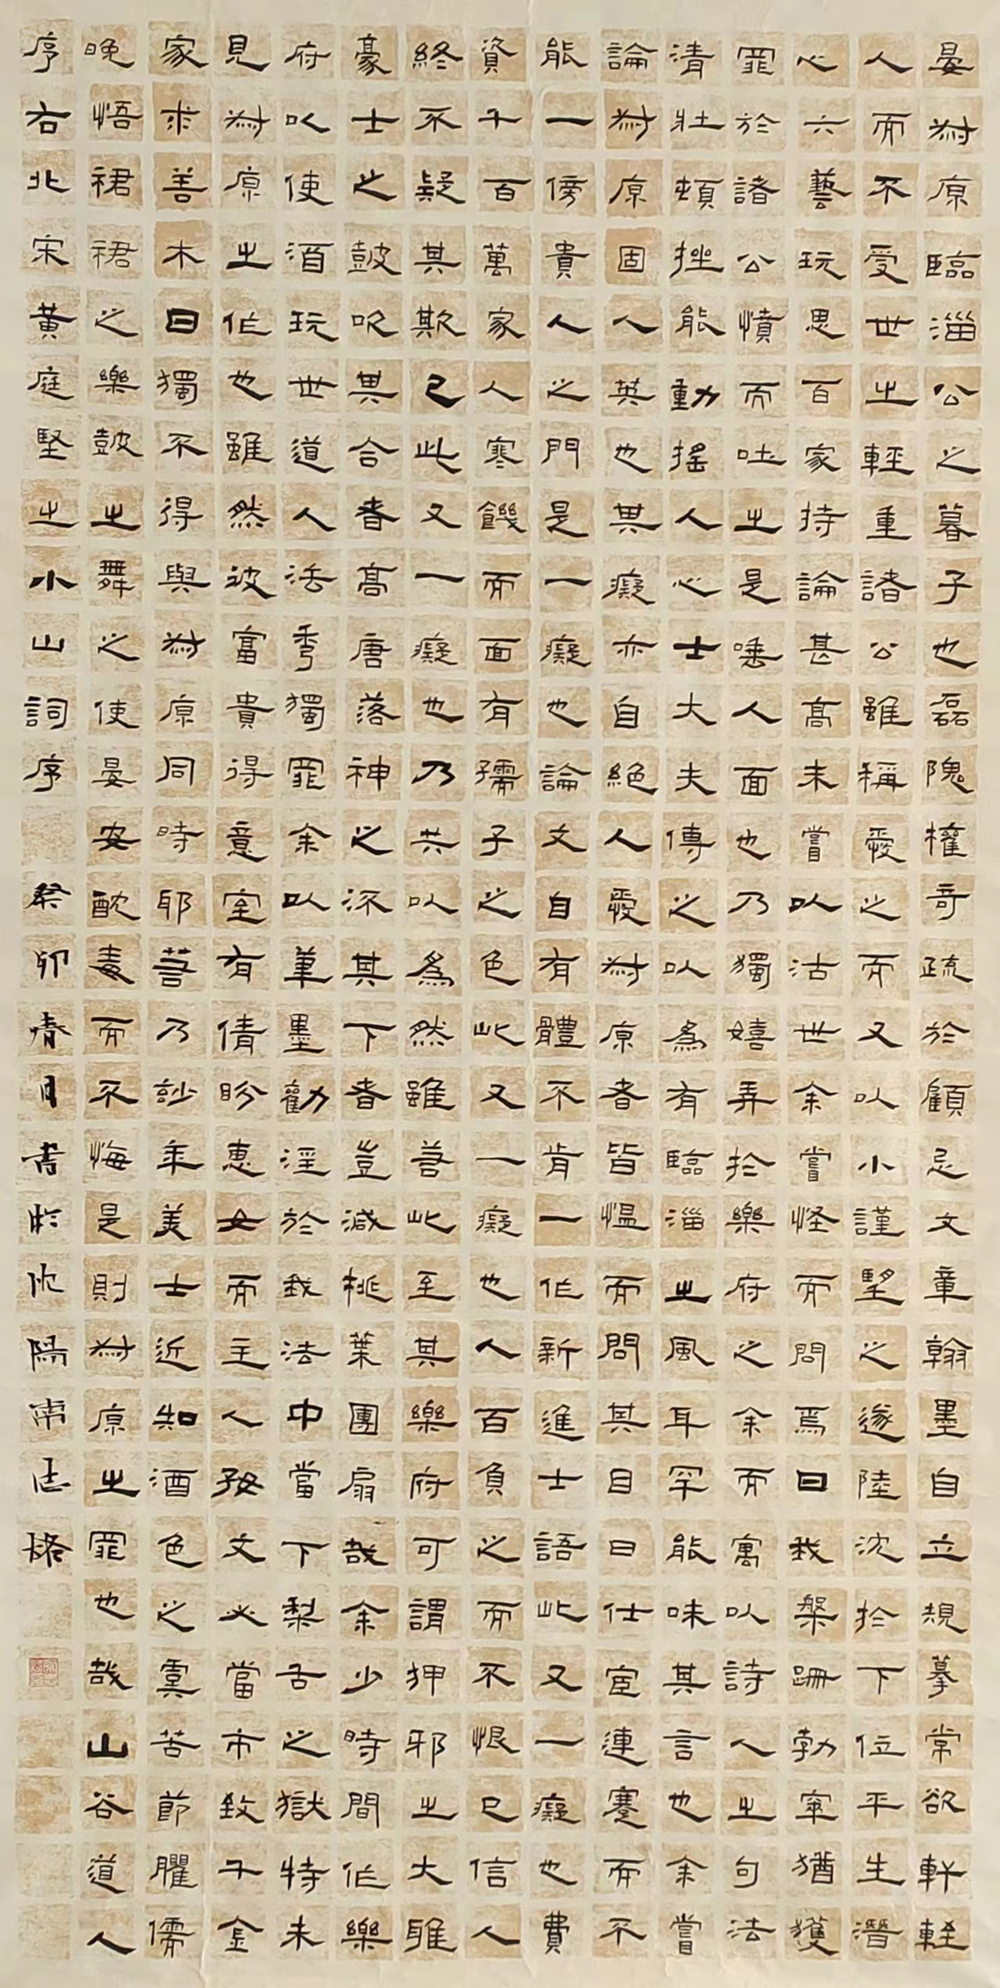 晏叔原臨淄公之暮子也磊隗權奇疏於顧忌文章翰墨自立規摹常欲軒輊
人而不受世之輕重諸公雖稱愛之而又以小謹望之遂陸沈於下位平生潛
心六藝玩思百家持論甚高未嘗以沽世余嘗怪而問焉曰我槃跚勃窣猶獲
罪於諸公憤而吐之是唾人面也乃獨嬉弄於樂府之余而寓以詩人之句法
清壯頓挫能動搖人心士大夫傳之以為有臨淄之風耳罕能味其言也余嘗
論叔原固人英也其癡亦自絕人愛叔原者皆慍而問其目曰仕宦連蹇而不
能一傍貴人之門是一癡也論文自有體不肯一作新進士語此又一癡也費
資千百萬家人寒饑而面有孺子之色此又一癡也人百負之而不恨己信人
終不疑其欺己此又一癡也乃共以為然雖若此至其樂府可謂狎邪之大雅
豪士之鼓吹其合者高唐落神之流其下者豈減桃葉團扇哉余少時間作樂
府以使酒玩世道人法秀獨罪余以筆墨勸淫於我法中當下犁舌之獄特未
見叔原之作也雖然彼富貴得意室有倩盼惠女而主人好文必當市致千金
家求善木曰獨不得與叔原同時耶若乃妙年美士近知酒色之虞苦節臞儒
晚悟裙裙之樂鼓之舞之使晏安酖毒而不悔是則叔原之罪也哉山谷道人
序右北宋黃庭堅之小山詞序 癸卯春月書於沈陽南格